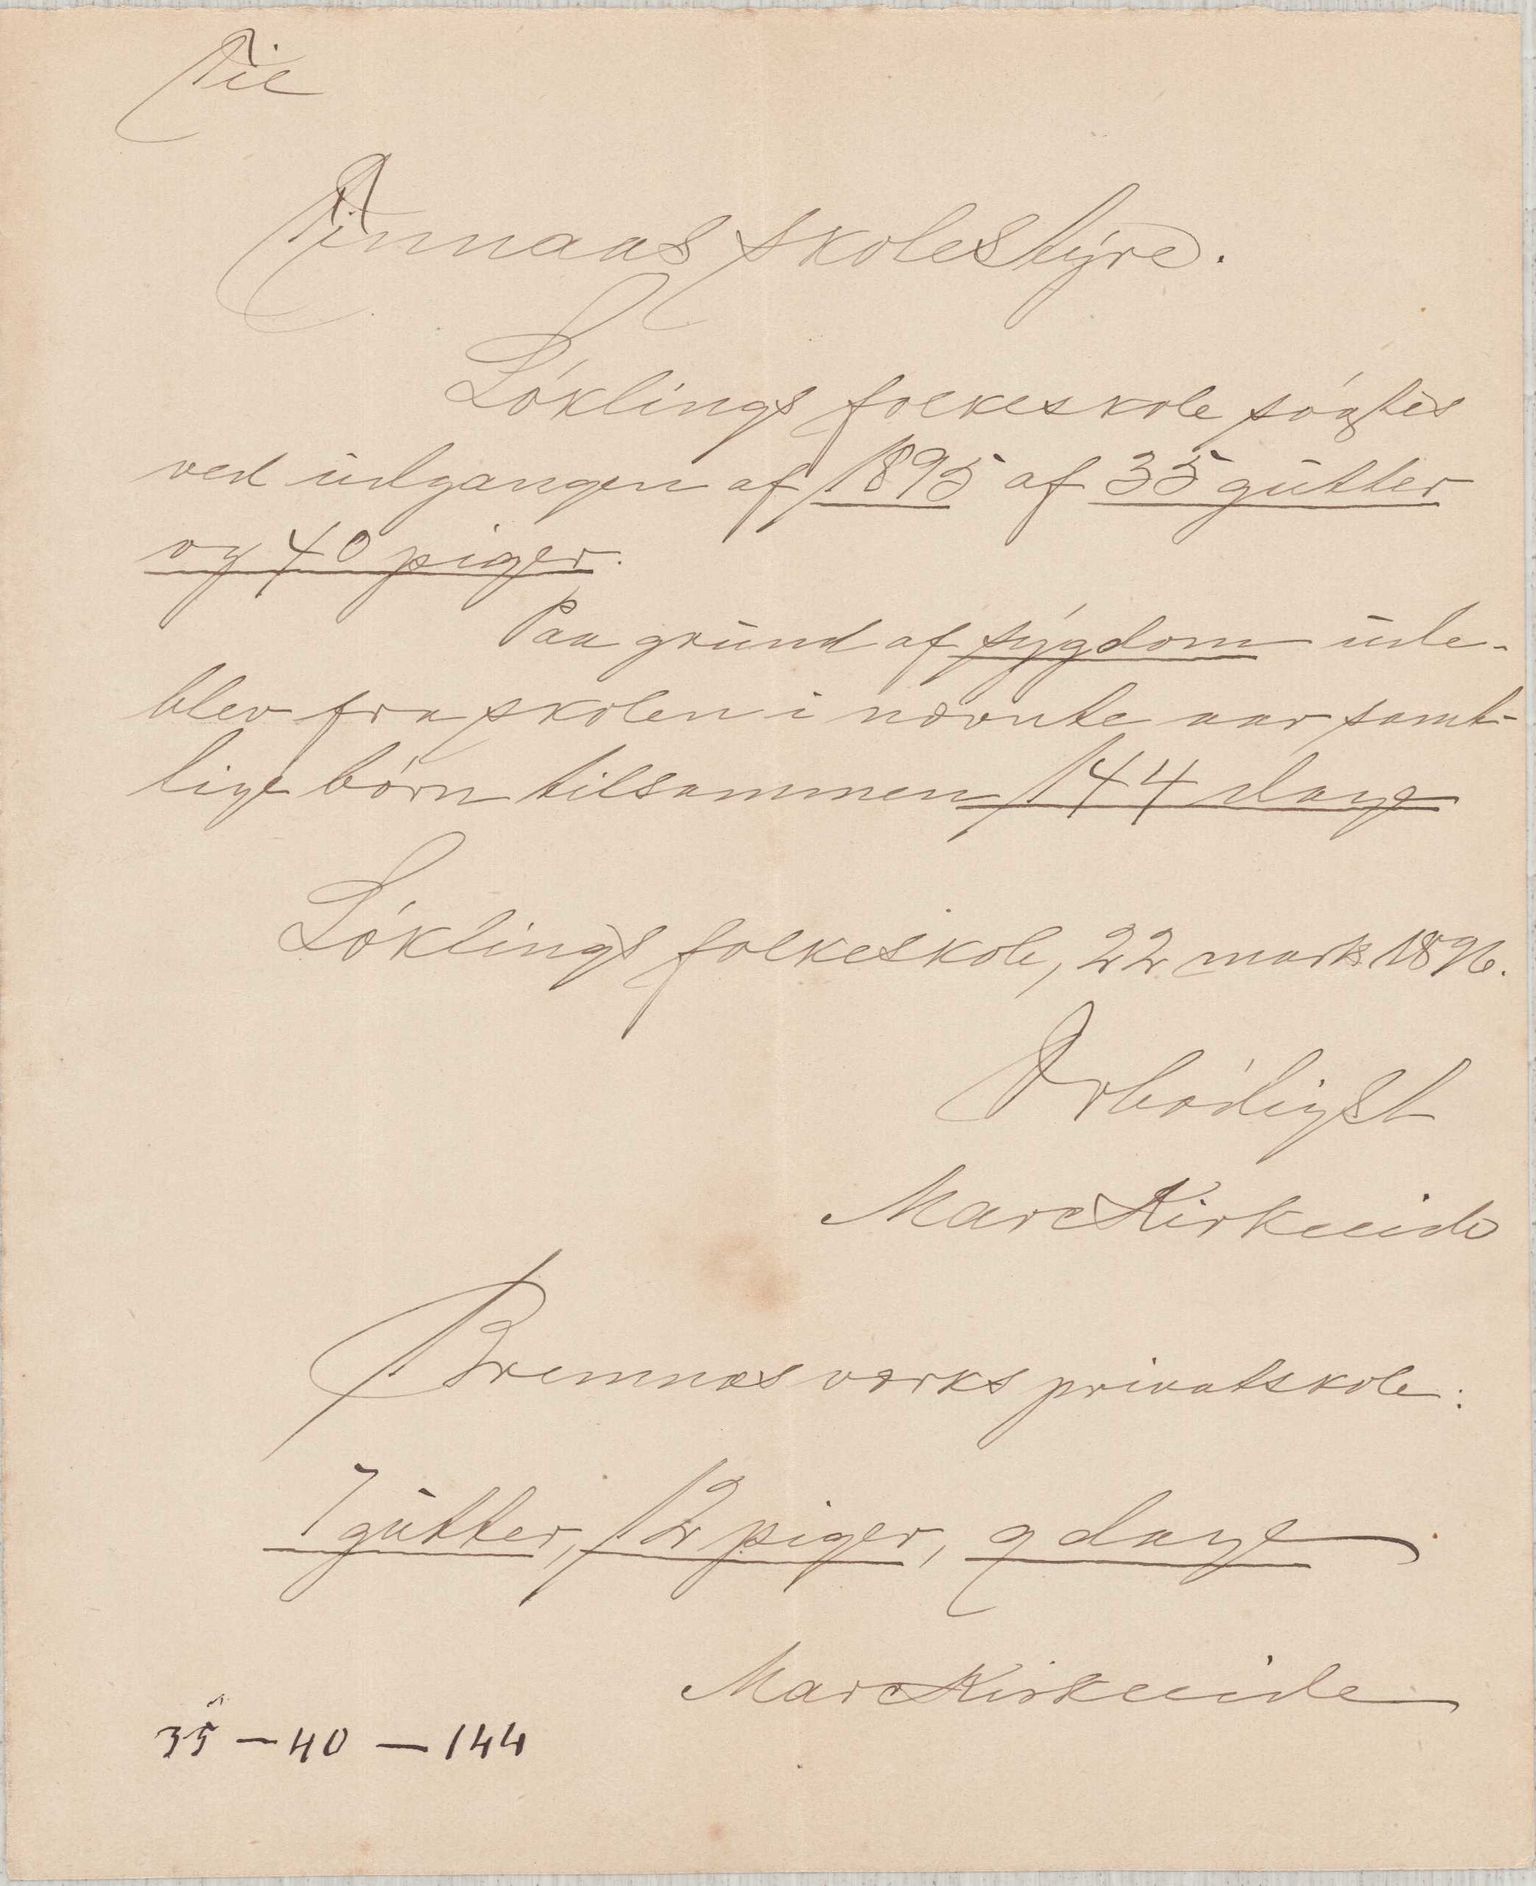 Til
Tinnaas skolestyre.
Løklings folkeskole søgtes
ved udgangen af 1895 af 35 gutter
og 40 piger.
Paa grund af sygdom ude-
blev fra skolen i nævnte aar samt-
lige børn tilsammen 144 dage
Løklings folkeskole, 22 marts 1896.
Ærbødigst
Marc Kirkeeide
Bremnæs værks privatskole:
7 gutter, 12 piger, 9 dage
Marc Kirkeeide
35 — 40 — 144